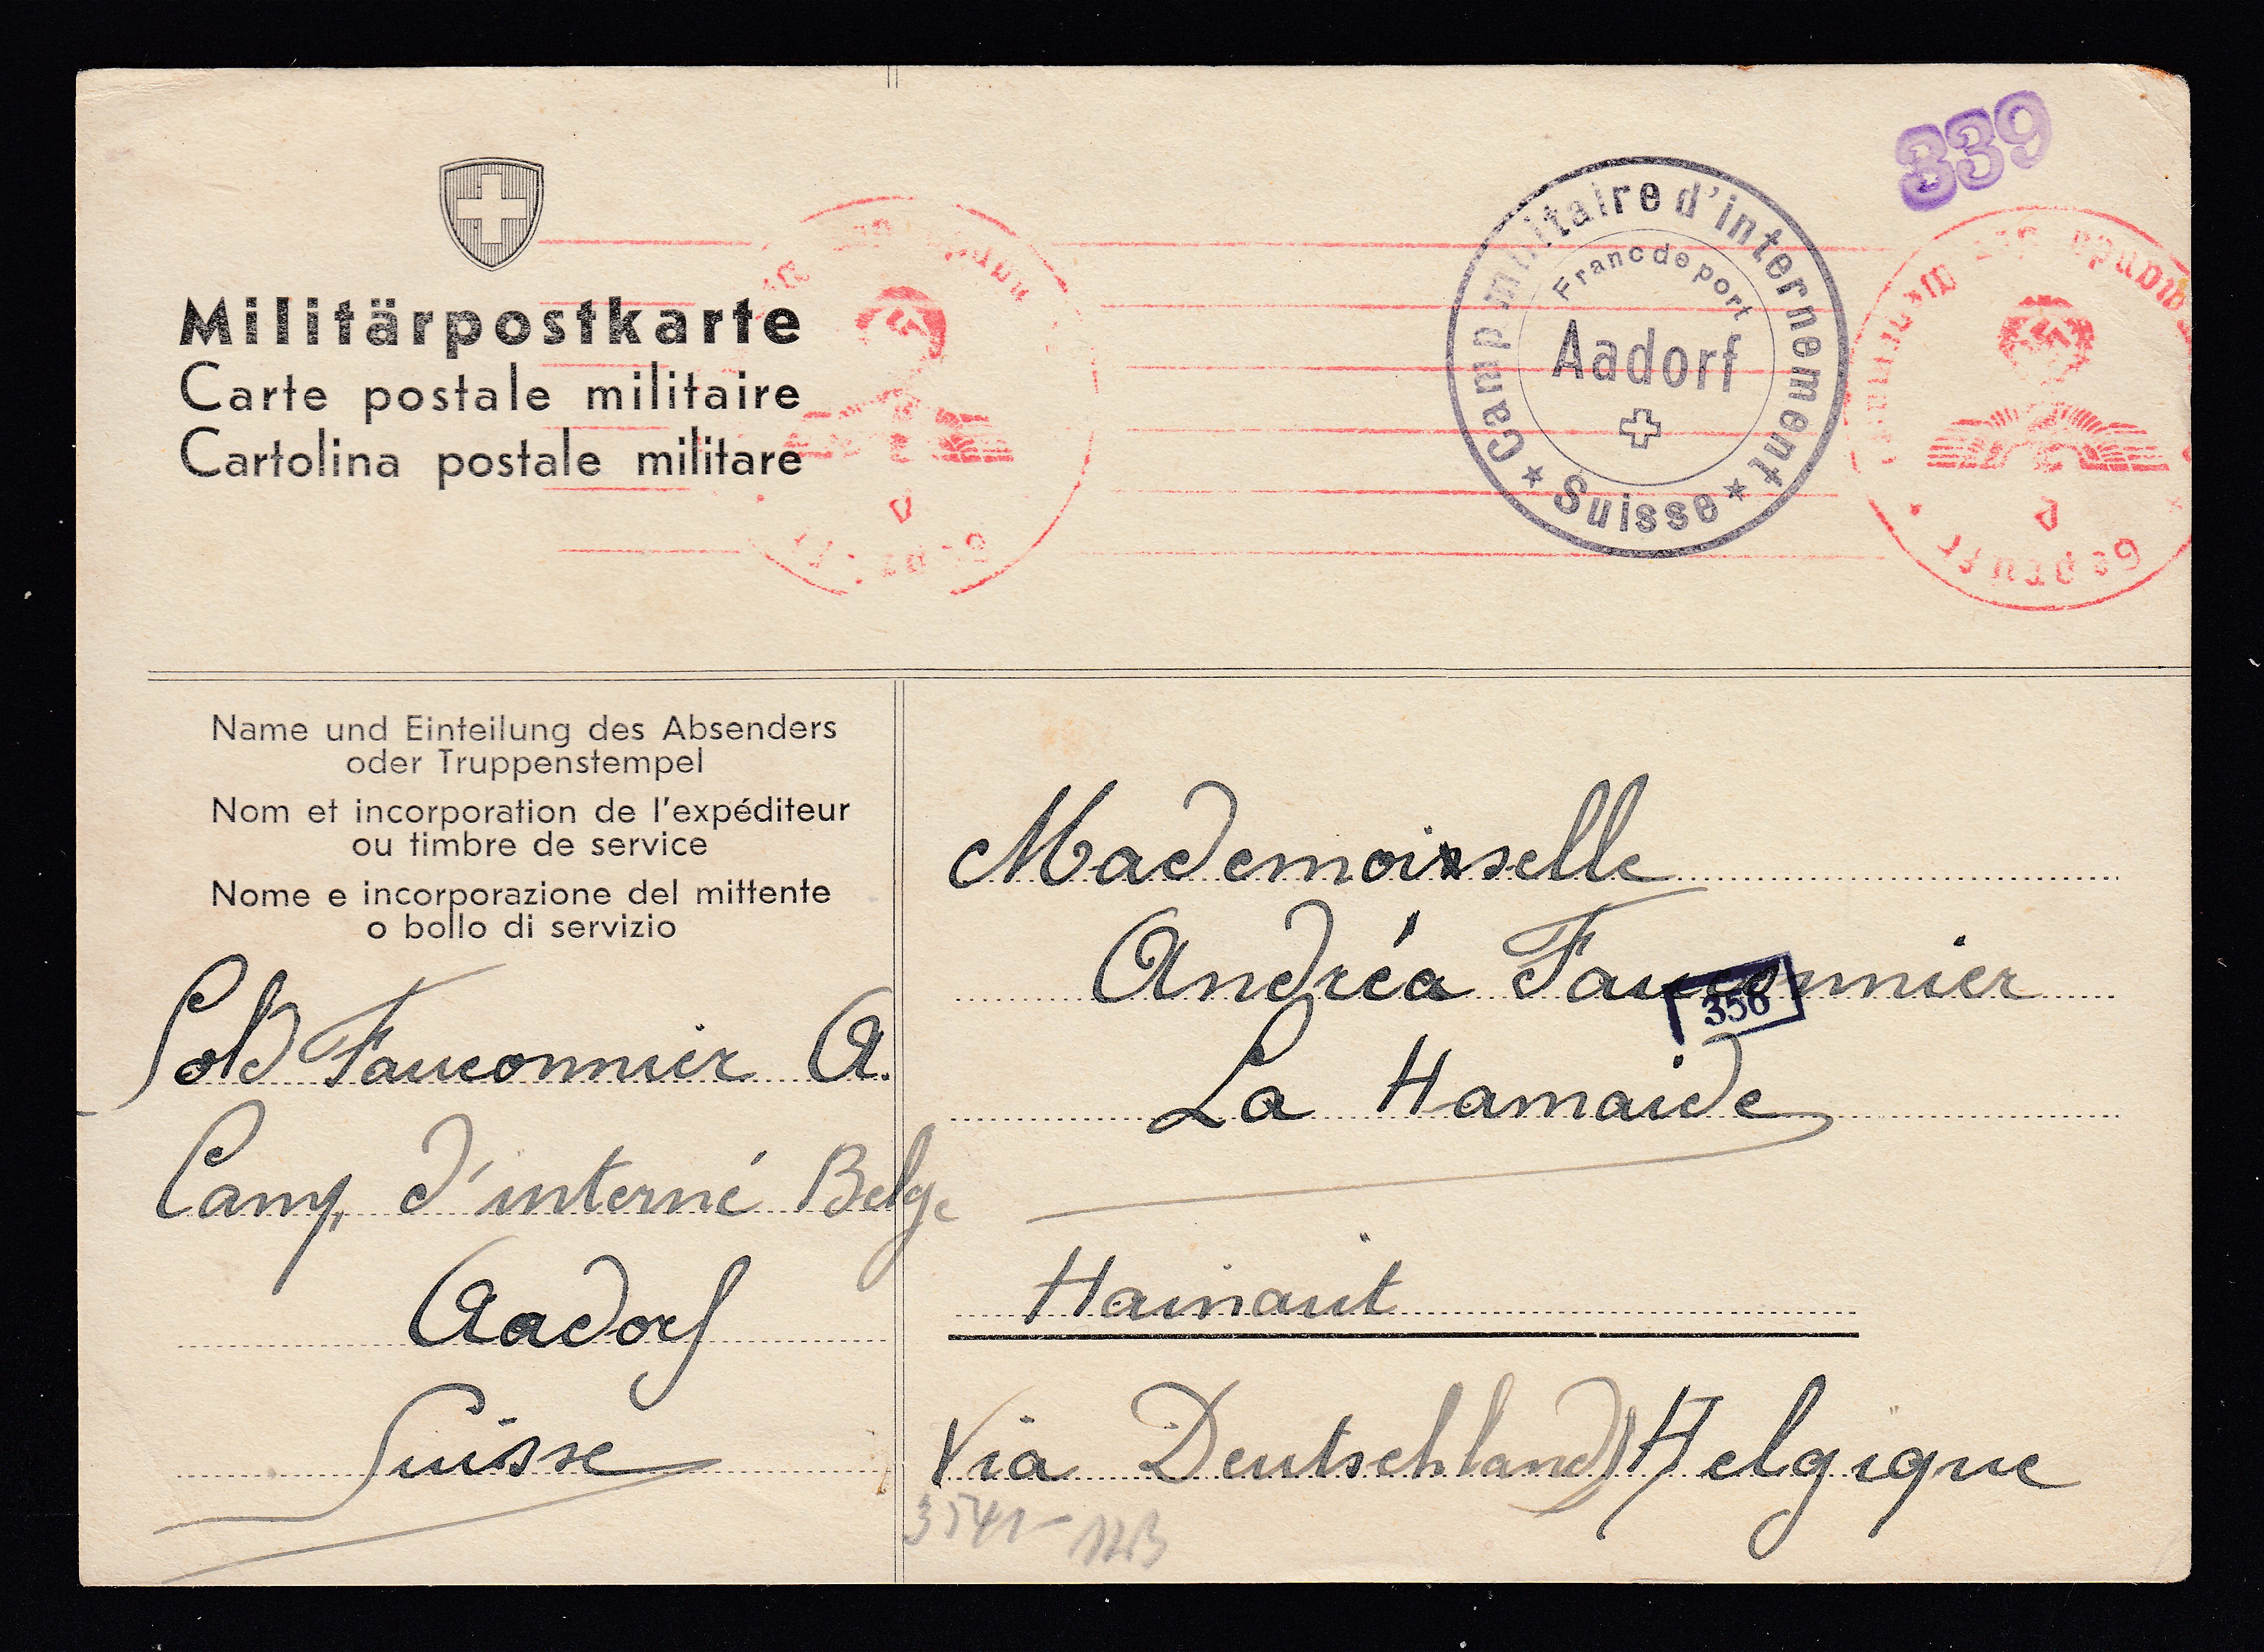 339
Camp militaire d'internement
Franc de port
Aadorf
★ Suisse ★
Militärpostkarte
Carte postale militaire
Cartolina postale militare
Geprüft
Name und Einteilung des Absenders
oder Truppenstempel
Nom et incorporation de l'expéditeur
ou timbre de service
Nome e incorporazione del mittente
o bollo di servizio
Sold Fauconnier A.
Camp. d'interné Belge
Aadorf
Suisse
Mademoisselle
Andréa Fauconnier
356
La Hamaide
Hainaut
Via Deutschland Belgique